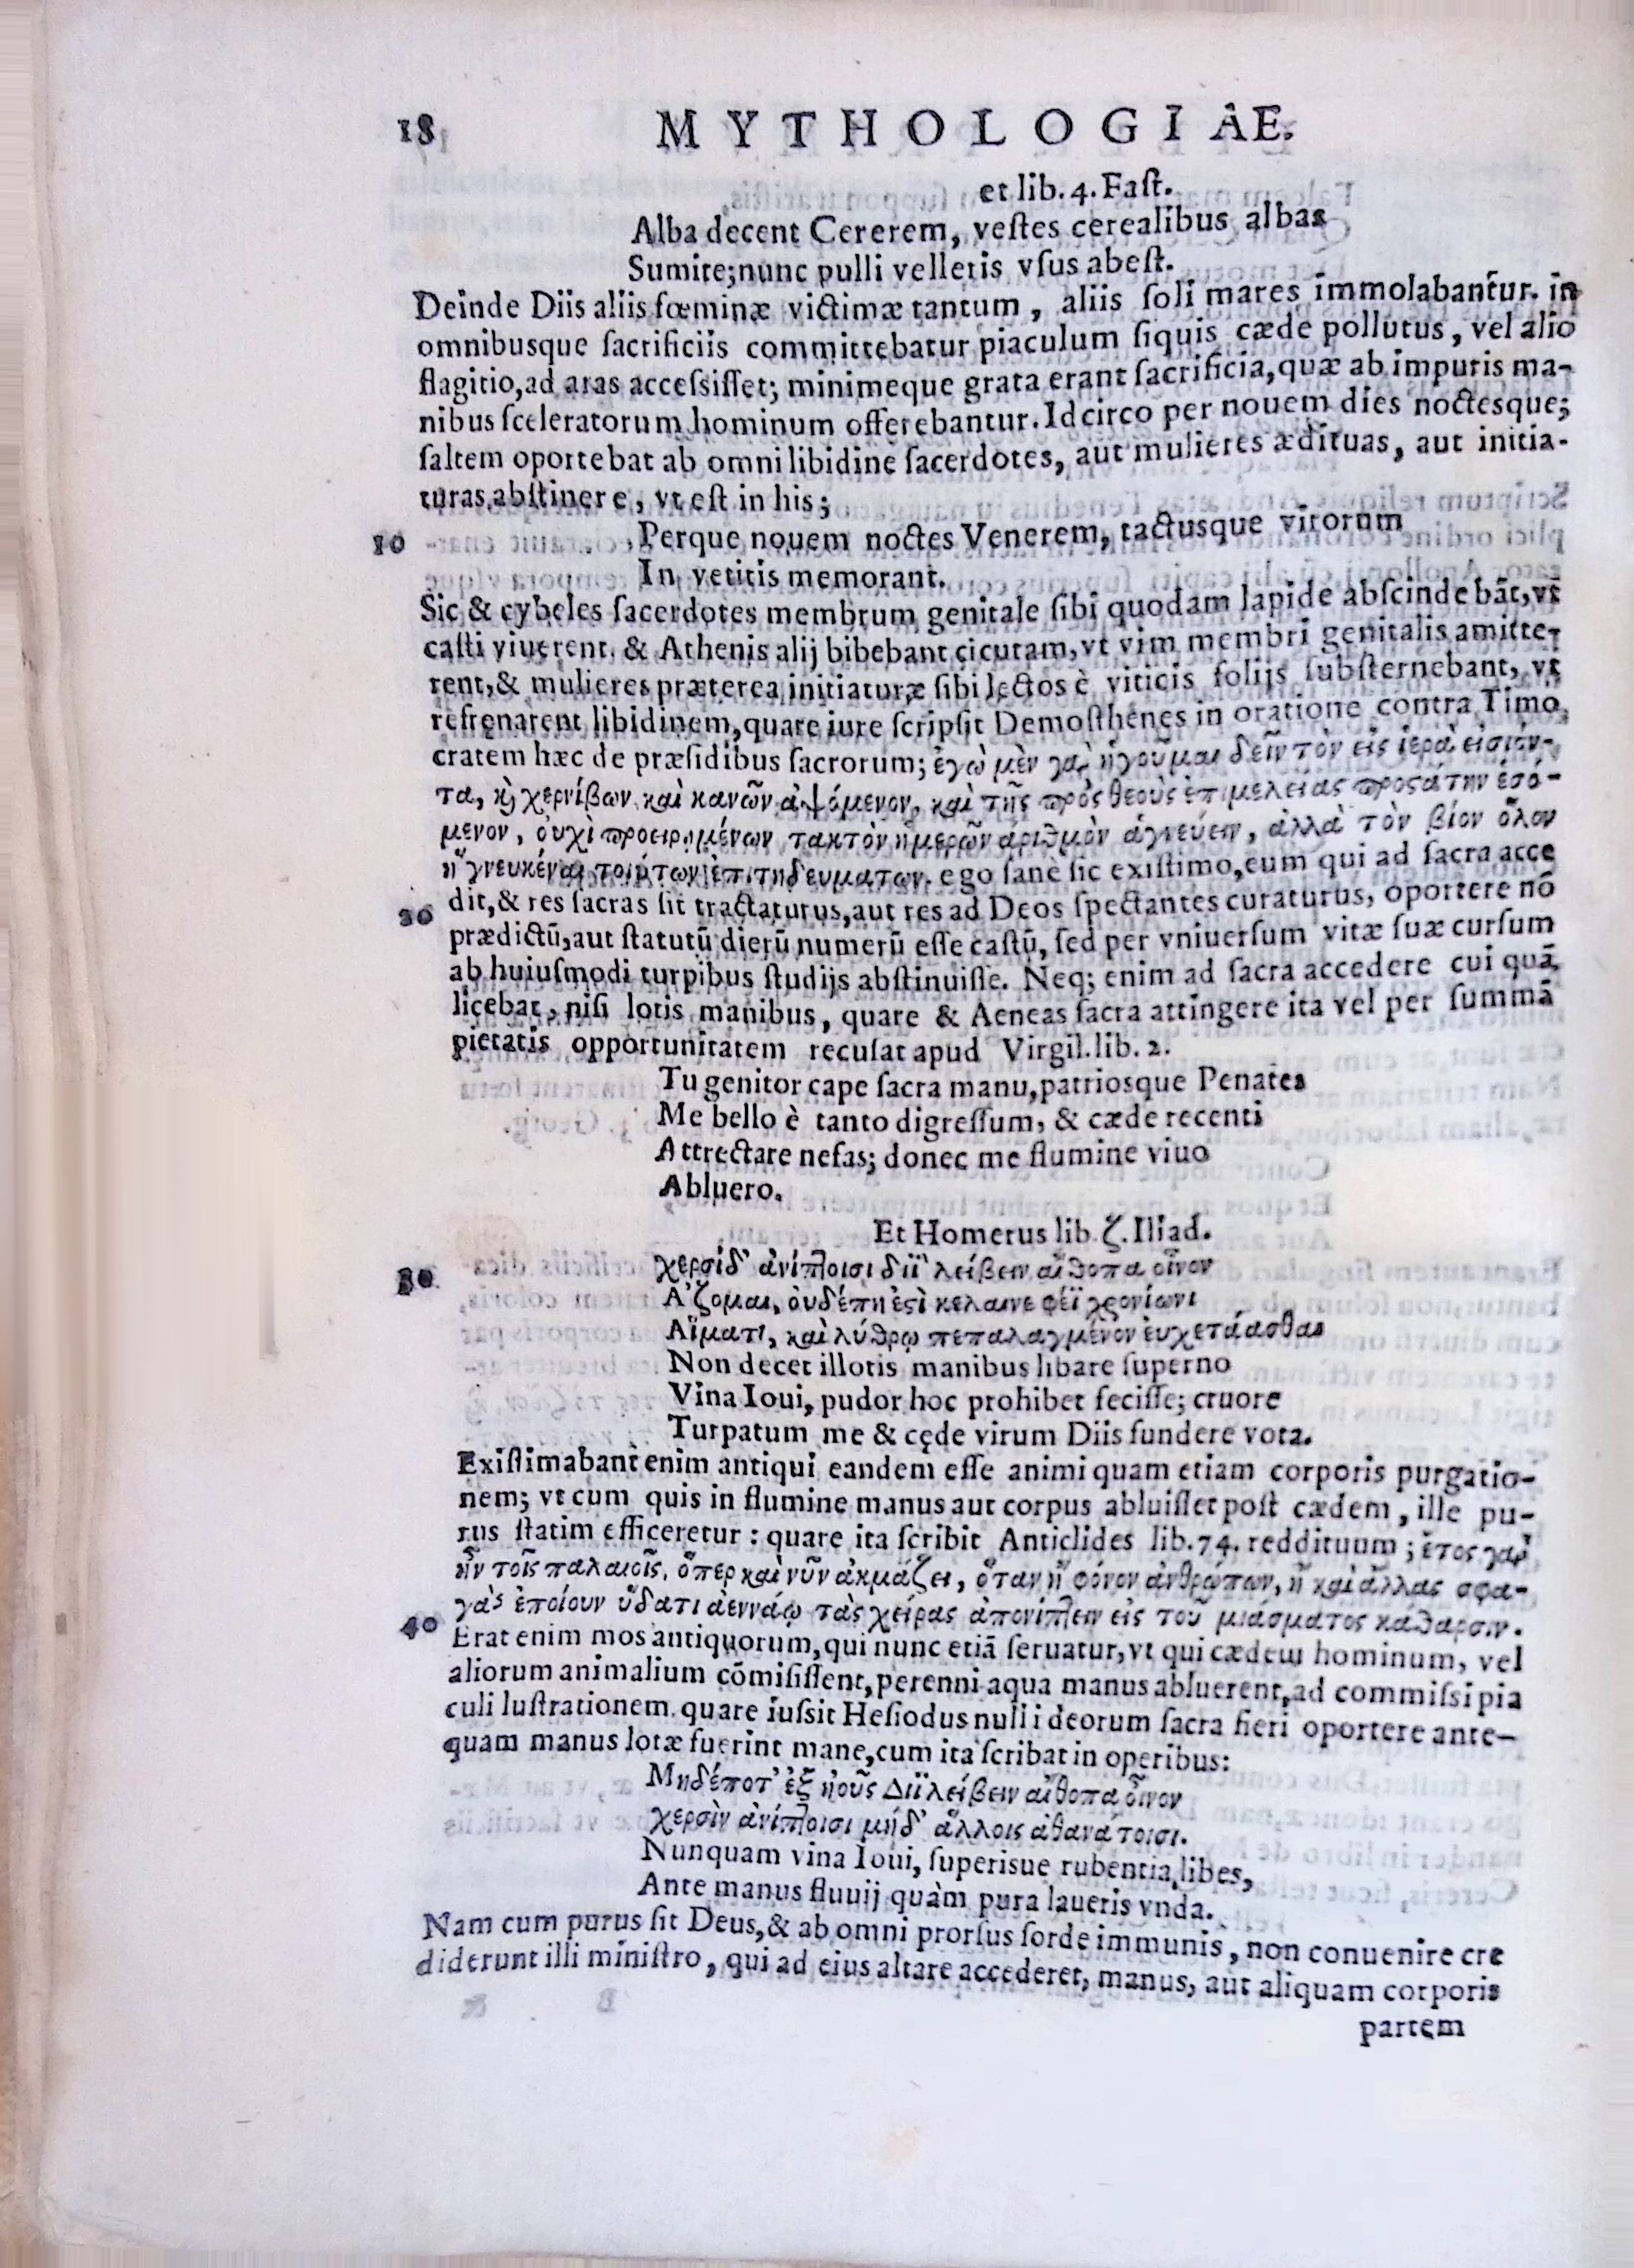 18 MYTHOLOGIAE.
et lib. 4. Faſt.
Alba decent Cererem, veſtes cerealibus albas
Sumite; nunc pulli velleris vſus abeſt.
Deinde Diis aliis fœminæ victimæ tantum, aliis ſoli mares immolabantur. in
omnibusque ſacrificiis committebatur piaculum ſiquis cæde pollutus, vel alio
flagitio, ad aras acceſsiſſet; minimeque grata erant ſacrificia, quæ ab impuris ma-
nibus ſceleratorum hominum offerebantur. Idcirco per nouem dies noctesque;
ſaltem oportebat ab omni libidine ſacerdotes, aut mulieres ædituas, aut initia-
turas abſtinere, vt eſt in his;
10 Perque nouem noctes Venerem, tactusque virorum
In vetitis memorant.
Sic & cybeles ſacerdotes membrum genitale ſibi quodam lapide abſcindebãt, vt
caſti viuerent. & Athenis alij bibebant cicutam, vt vim membri genitalis amitte-
rent, & mulieres præterea initiaturæ ſibi lectos è viticis folijs ſubſternebant, vt
refrenarent libidinem, quare iure ſcripſit Demoſthenes in oratione contra Timo
cratem hæc de præſidibus ſacrorum; ἐγὼ μὲν γὰρ ἡγοῦμαι δεῖν τὸν εἰς ἱερὰ εἰσιόν-
τα, ϗ χερνίβων καὶ κανῶν ἁψόμενον, καὶ τῆς πρὸς θεοὺς ἐπιμελείας προσάτην ἐσό-
μενον, οὐχὶ προειρημένων τακτὸν ἡμερῶν ἀριθμὸν ἁγνεύειν, ἀλλὰ τὸν βίον ὅλον
ἡγνευκέναι τοιύτων ἐπιτηδευματων. ego ſane ſic exiſtimo, eum qui ad ſacra acce
20 dit, & res ſacras ſit tractaturus, aut res ad Deos ſpectantes curaturus, oportere nõ
prædictũ, aut ſtatutũ dierũ numerũ eſſe caſtũ, ſed per vniuerſum vitæ ſuæ curſum
ab huiuſmodi turpibus ſtudijs abſtinuiſſe. Neq; enim ad ſacra accedere cui quã
licebat, niſi lotis manibus, quare & Aeneas ſacra attingere ita vel per ſummã
pietatis opportunitatem recuſat apud Virgil. lib. 2.
Tu genitor cape ſacra manu, patriosque Penates
Me bello è tanto digreſſum, & cæde recenti
Attrectare nefas; donec me flumine viuo
Abluero.
Et Homerus lib. ζ. Iliad.
30 χερσίδ' ἀνίπτοισι διῒ λείβειν αἴθοπα οἶνον
Α῞ζομαι, ὀυδέπη ἐςὶ κελαινεφέϊ χρονίωνι
Αἵματι, καὶ λύθρῳ πεπαλαγμένον ἐυχετάασθαι
Non decet illotis manibus libare ſuperno
Vina Ioui, pudor hoc prohibet feciſſe; cruore
Turpatum me & cęde virum Diis fundere vota.
Exiſtimabant enim antiqui eandem eſſe animi quam etiam corporis purgatio-
nem; vt cum quis in flumine manus aut corpus abluiſſet poſt cædem, ille pu-
rus ſtatim efficeretur: quare ita ſcribit Anticlides lib. 74. reddituum; ἔτος γὰρ
ἦν τοῖς παλαιοῖς, ὅπερ καὶ νῦν ἀκμάζει, ὅταν ἢ φόνον ἀνθρώπων, ἢ καὶ ἄλλας σφα-
γὰς ἐποίουν ὕδατι ἀεννάῳ τὰς χείρας ἀπονίπτειν εἰς τοῦ μιάσματος κάθαρσιν.
40 Erat enim mos antiquorum, qui nunc etiã ſeruatur, vt qui cædem hominum, vel
aliorum animalium cõmiſiſſent, perenni aqua manus abluerent, ad commiſsi pia
culi luſtrationem. quare iuſsit Heſiodus nulli deorum ſacra fieri oportere ante-
quam manus lotæ fuerint mane, cum ita ſcribat in operibus:
Μηδέποτ' ἐξ ἠοῦς Διῒ λείβειν αἴθοπα οἶνον
χερσὶν ἀνίπτοισι μήδ' ἄλλοις ἀθανάτοισι.
Nunquam vina Ioui, ſuperisue rubentia libes,
Ante manus fluuij quàm pura laueris vnda.
Nam cum purus ſit Deus, & ab omni prorſus ſorde immunis, non conuenire cre
diderunt illi miniſtro, qui ad eius altare accederet, manus, aut aliquam corporis
partem